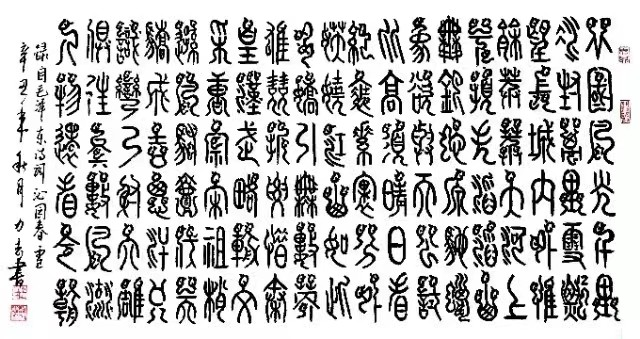 北國風光千里
冰封萬里雪飄
望長城內外惟
餘莽莽大河上
下頓失滔滔山
舞銀蛇原馳蠟
象欲與天公試
比高須晴日看
紅裝素裹分外
妖嬈江山如此
多嬌引無數英
雄競折腰惜秦
皇漢武略輸文
采唐宗宋祖稍
遜風騷一代天
驕成吉思汗只
識彎弓射大雕
俱往矣數風流
人物還看今朝
录自毛泽东诗词沁园春雪
辛丑年秋月力書